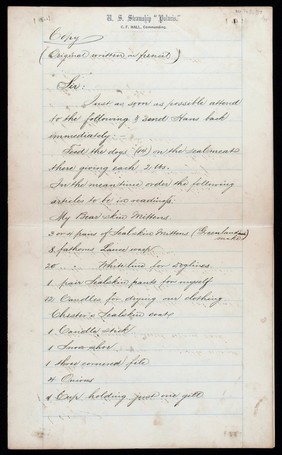 U. S. Steamship "Polaris,"
C. F. HALL, Commanding.
Copy
(Original written in pencil)
Sir:
Just as soon as possible attend
to the following & send Hans back
immediately:
Feed the dogs (14) on the sealmeats
there giving each 2 lbs.
In the meantime order the following
articles to be in readiness
My Bear skin Mittens
3 or 4 pairs of Sealskin Mittens (Greenland make)
8 fathoms Lance warp
20 " : White line for doglines
1 pair Sealskin pants for myself
12 Candles for drying our clothing
Chester's Sealskin coats
1 Candle stick
1 Snow shoe
1 three cornered file
4 Onions
1 Cup holding just one gill